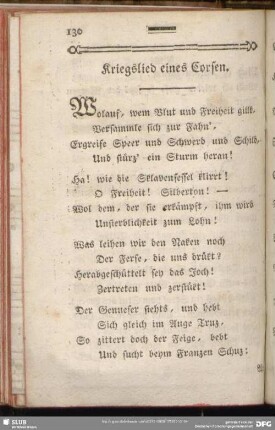 130
Kriegslied eines Corsen.
Wolauf, wem Blut und Freiheit gilt,
Versammle sich zur Fahn',
Ergreife Speer und Schwerd und Schild,
Und stürz' ein Sturm heran!
Ha! wie die Sklavenfessel klirrt!
O Freiheit! Silberton! —
Wol dem, der sie erkämpft, ihm wird
Unsterblichkeit zum Lohn!
Was leihen wir den Naken noch
Der Ferse, die uns drükt?
Herabgeschüttelt sey das Joch!
Zertreten und zerstükt!
Der Genueser siehts, und hebt
Sich gleich im Auge Truz,
So zittert doch der Feige, bebt
Und sucht beym Franzen Schuz:
SLUB